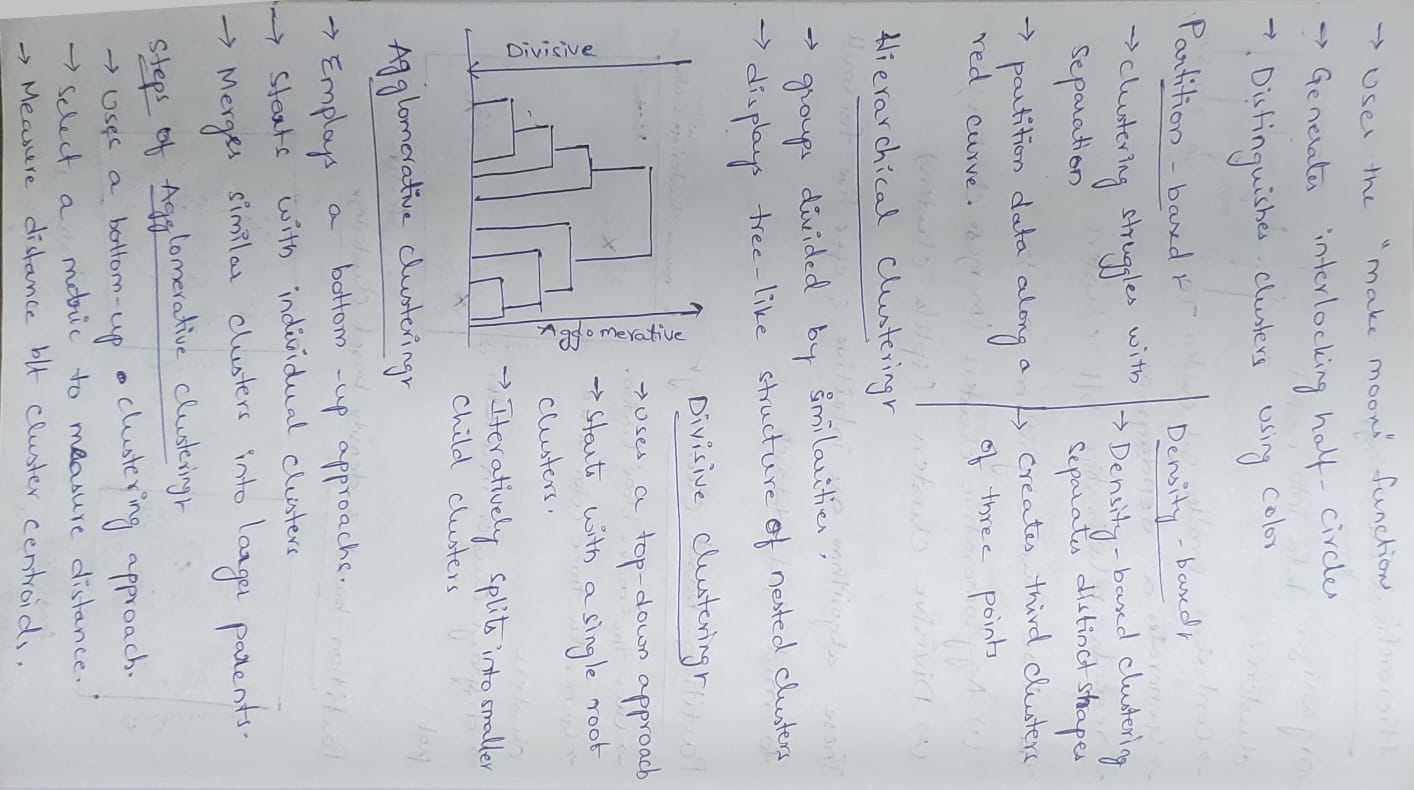 → Uses the "make moons" function
→ Generates interlocking half-circles
→ Distinguishes clusters using color
Partition-based
→ clustering struggles with
separation
→ partition data along a
red curve.
Density-based
→ Density-based clustering
separates distinct shapes
↳ creates third clusters
of three points
Hierarchical Clustering
→ groups divided by similarities.
→ displays tree-like structure of nested clusters
Divisive
Agglomerative
Divisive Clustering
→ uses a top-down approach
→ Starts with a single root
clusters.
→ Iteratively splits into smaller
Child clusters
Agglomerative clustering
→ Employs a bottom-up approachs.
→ Starts with individual clusters
→ Merges similar clusters into larger parents.
Steps of Agglomerative clustering
→ Uses a bottom-up clustering approach.
→ Select a metric to measure distance.
→ Measure distance b/t cluster centroids.